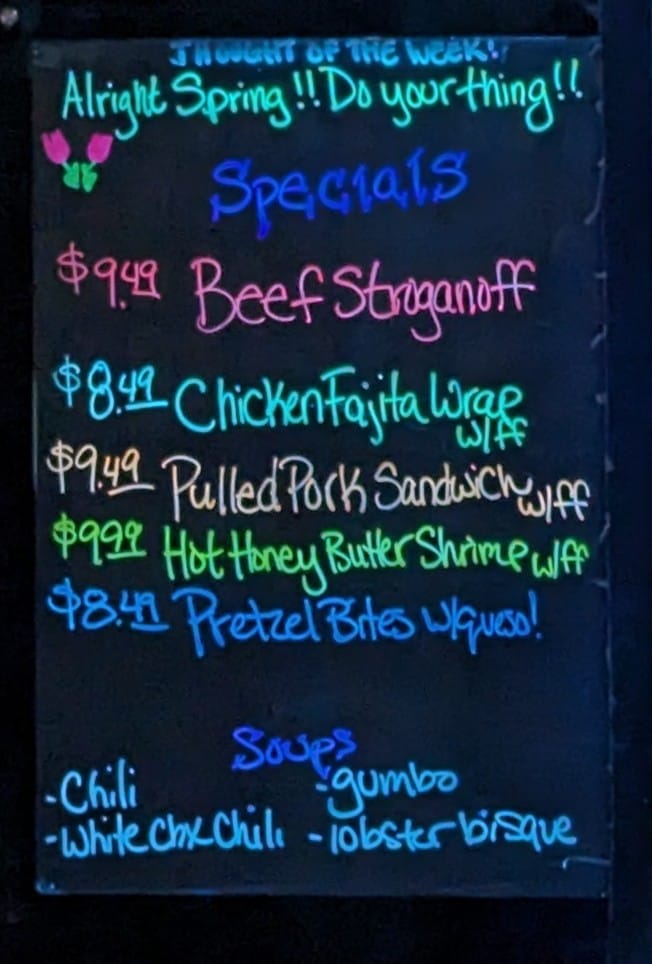 THOUGHT OF THE WEEK!
Alright Spring!! Do your thing!!
Specials
$9.49 Beef Stroganoff
$8.49 Chicken Fajita Wrap
w/ff
$9.49 Pulled Pork Sandwich w/ff
$9.99 Hot Honey Butter Shrimp w/ff
$8.49 Pretzel Bites w/queso!
Soups
-Chili -gumbo
-White Chx Chili -lobster bisque